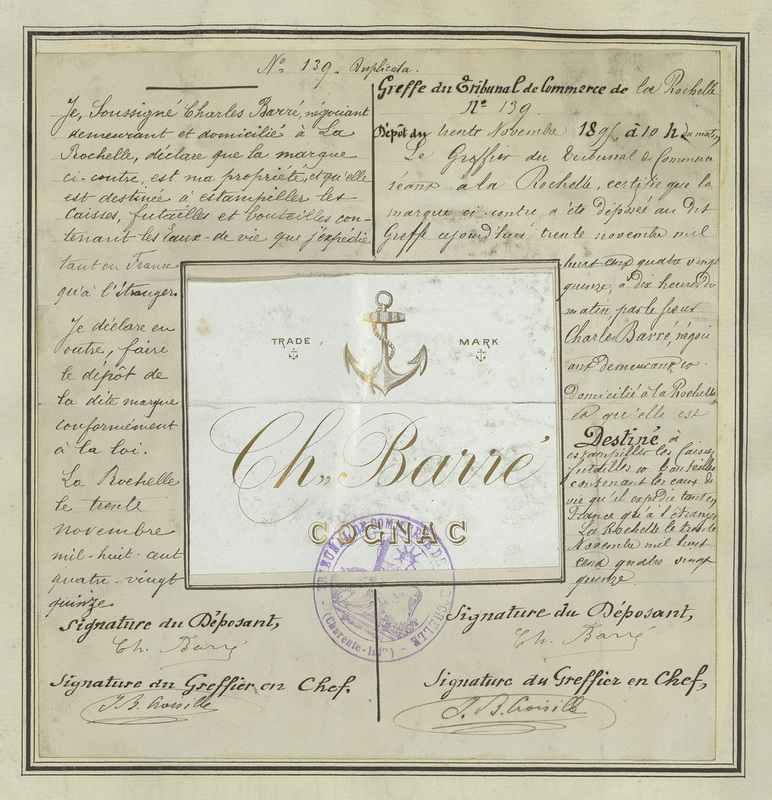 Nº 139. Duplicata.
Je, Soussigné Charles Barré, négociant
demeurant et domicilié à La
Rochelle, déclare que la marque
ci-contre, est ma propriété, et qu'elle
est destinée à estampiller les
Caisses, futailles et bouteilles con-
tenant les Eaux-de-vie que j'expédie
tant en France
qu'à l'étranger.
Je déclare en
outre, faire
le dépôt de
la dite marque
conformément
à la loi.
La Rochelle
le trente
novembre
mil-huit-cent
quatre-vingt
quinze
Signature du Déposant,
Ch. Barré
Signature du Greffier en Chef.
Greffe du Tribunal de Commerce de la Rochelle
Nº 139.
Dépôt du trente Novembre 1895, à 10 h du matin,
Le Greffier du Tribunal de Commerce
séant à la Rochelle, certifie que la
marque ci-contre a été déposé au dit
Greffe aujourd'hui trente novembre mil
huit cent quatre vingt
quinze, à dix heures du
matin, par le sieur
Charles Barré, négoci
ant demeurant et
domicilié à la Rochelle
et qu'elle est
Destiné à
estampiller les Caisses
futailles et bouteilles
contenant les eaux de
vie qu'il expédie tant en
France qu'à l'étranger
La Rochelle le trente
Novembre mil huit
cent quatre vingt
quinze.
Signature du Déposant,
Ch. Barré
Signature du Greffier en Chef,
TRADE MARK
Ch. Barré
COGNAC
TRIBUNAL DE COMMERCE DE LA ROCHELLE
(Charente-Infre)